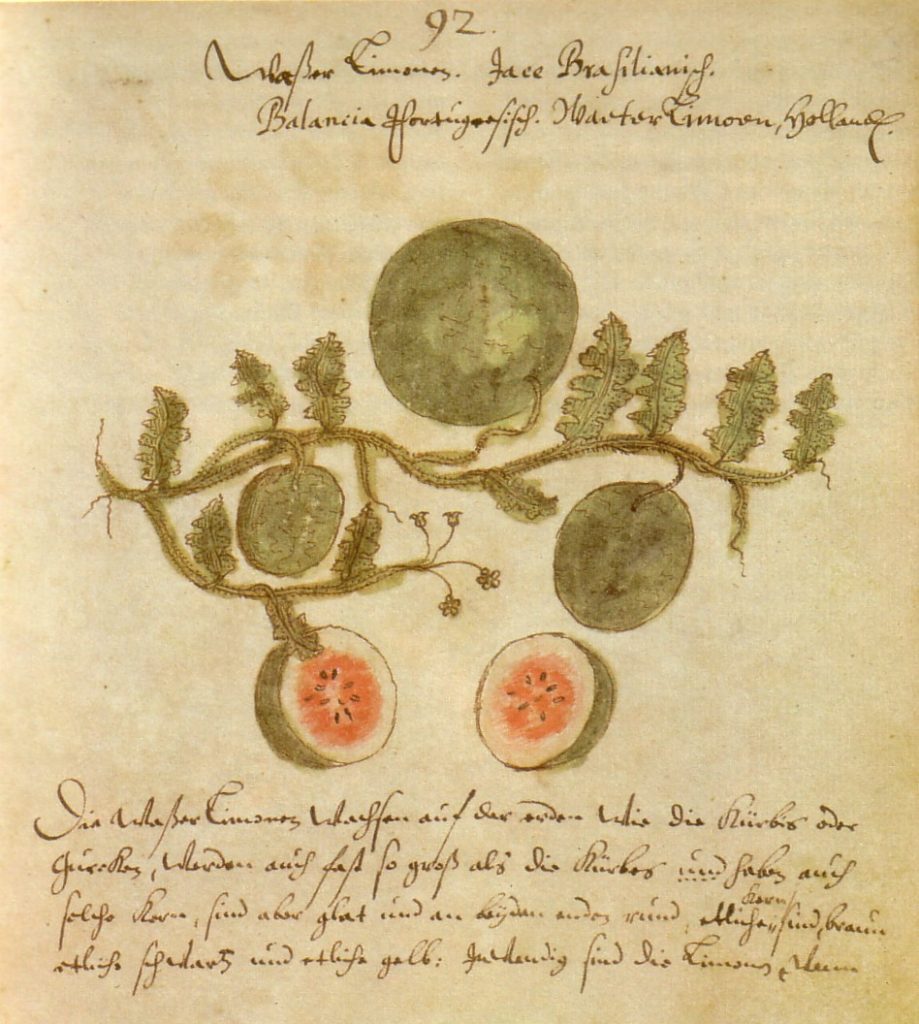 92.
Waßer Limonen. Jace Brasilianisch.
Balancia Portugesisch. Waeter Limoen, Holland.
Die Waßer Limonen Wachsen auf der erden wie die Kürbis oder
Gurcken, werden auch fast so groß als die Kürbes und haben auch
solche Kern, sind aber glat und an beÿden enden rund, etliche Kern sind, braun
etliche schwartz und etliche gelb: Inwendig sind die Limonen, wenn